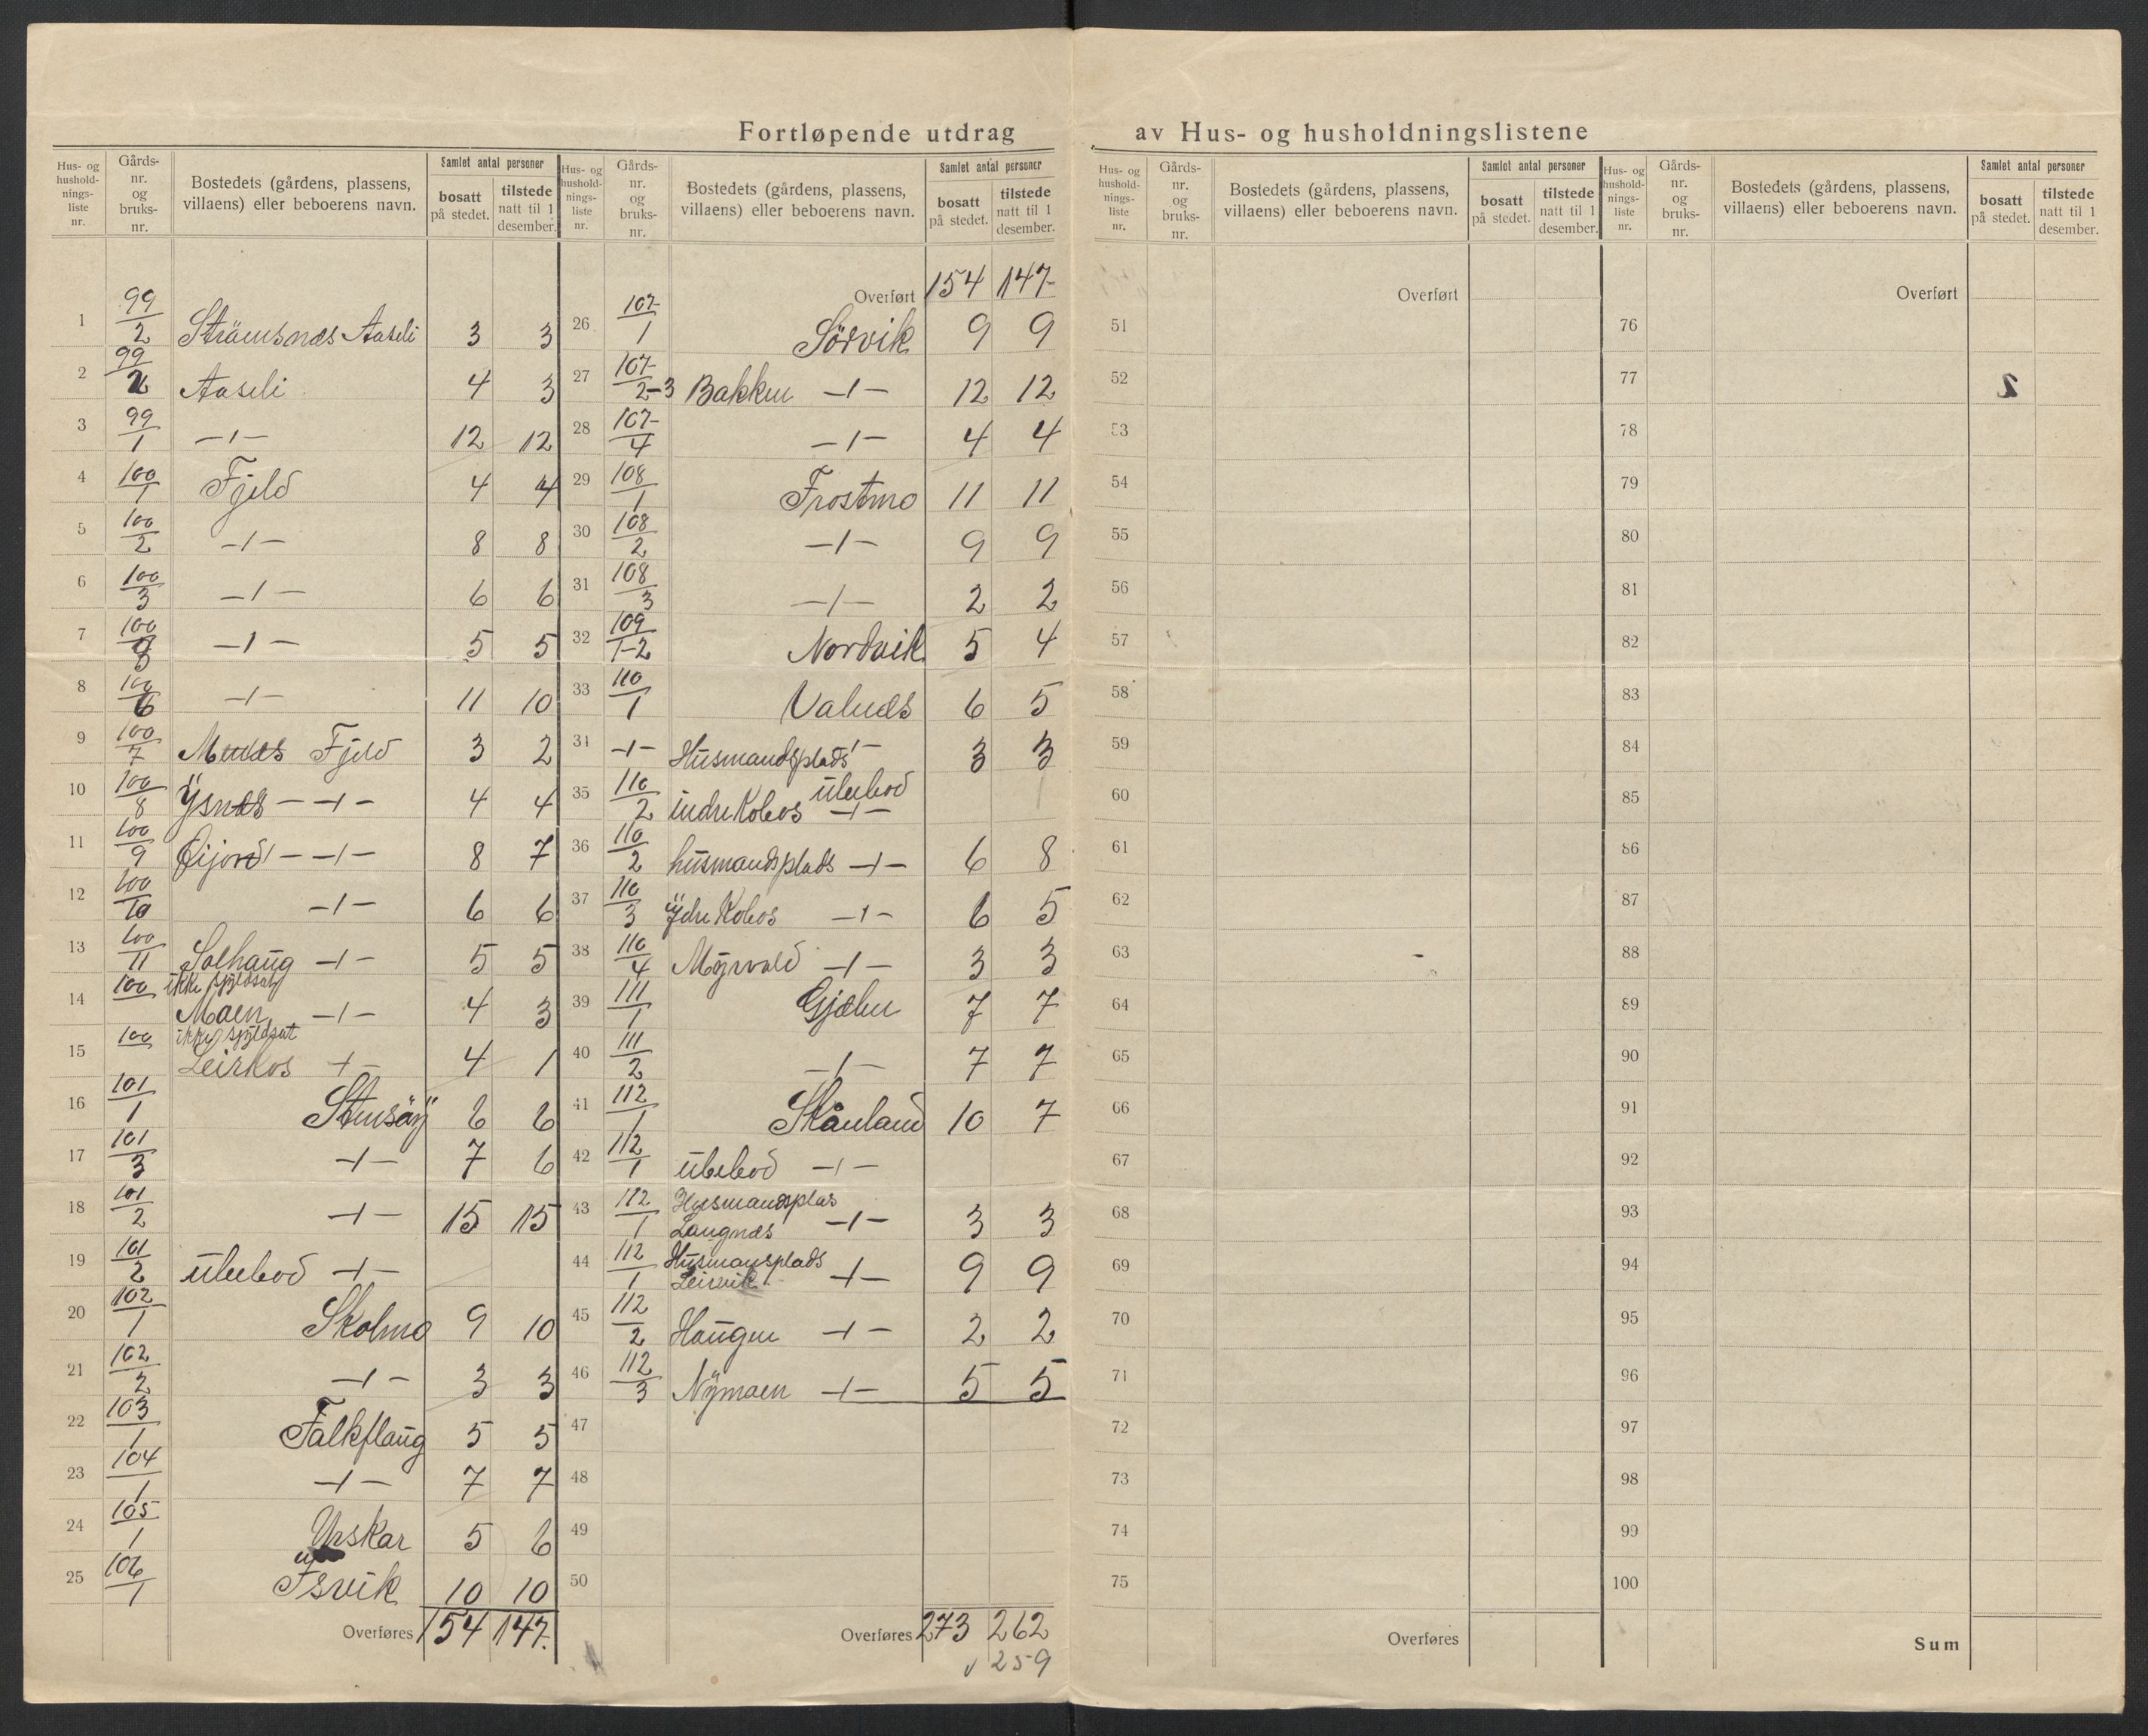 Fortløpende utdrag av Hus- og husholdningslistene
Hus- og husholdningsliste nr. | Gårds-nr. og bruks-nr. | Bostedets (gårdens, plassens, villaens) eller beboerens navn. | Samlet antal personer bosatt på stedet. | tilstede natt til 1 desember.
1 99/2 Strömsnæs Aaseli 3 3
2 99/2 Aaseli 4 3
3 99/1 -1- 12 12
4 100/1 Fjeld 4 4
5 100/2 -1- 8 8
6 100/3 -1- 6 6
7 100 -1- 5 5
8 100/6 -1- 11 10
9 100/7 Fjeld 3 2
10 100/8 Ysnæs -1- 4 4
11 100/9 -1- 8 7
12 100/10 -1- 6 6
13 100/11 Solhaug -1- 5 5
14 100 ikke skyldsat
Moen -1- 4 3
15 100 ikke skyldsat
Leirkos -1- 4 1
16 101/1 Stensöy 6 6
17 101/3 -1- 7 6
18 101/2 -1- 15 15
19 101/2 ubebod -1-
20 102/1 Skolmo 9 10
21 102/2 -1- 3 3
22 103/1 Falkflaug 5 5
23 104/1 -1- 7 7
24 105/1 Urskar 5 6
25 106/1 Isvik 10 10
Overføres 154 147
Hus- og husholdningsliste nr. | Gårds-nr. og bruks-nr. | Bostedets (gårdens, plassens, villaens) eller beboerens navn. | Samlet antal personer bosatt på stedet. | tilstede natt til 1 desember.
Overført 154 147
26 107/1 Sörvik 9 9
27 107/2-3 Bakken -1- 12 12
28 107/4 -1- 4 4
29 108/1 Frostmo 11 11
30 108/2 -1- 9 9
31 108/3 -1- 2 2
32 109/1-2 Nordvik 5 4
33 110/1 Valnæs 6 5
34 -1- Husmandsplads -1- 3 3
35 110/2 indre Kobos ubebod -1-
36 110/2 husmandsplads -1- 6 8
37 110/3 ydre Kobos -1- 6 5
38 110/4 Myrvold -1- 3 3
39 111/1 Gjælen 7 7
40 111/2 -1- 7 7
41 112/1 Skånland 10 7
42 112/1 ubebod -1-
43 112/1 Husmandsplas
Langnæs -1- 3 3
44 112/1 Husmansplads
Leirvik -1- 9 9
45 112/2 Haugen -1- 2 2
46 112/3 Nymoen -1- 5 5
47
48
49
50
Overføres 273 262
259
Hus- og husholdningsliste nr. | Gårds-nr. og bruks-nr. | Bostedets (gårdens, plassens, villaens) eller beboerens navn. | Samlet antal personer bosatt på stedet. | tilstede natt til 1 desember.
Overført
51
52
53
54
55
56
57
58
59
60
61
62
63
64
65
66
67
68
69
70
71
72
73
74
75
Overføres
Hus- og husholdningsliste nr. | Gårds-nr. og bruks-nr. | Bostedets (gårdens, plassens, villaens) eller beboerens navn. | Samlet antal personer bosatt på stedet. | tilstede natt til 1 desember.
Overført
76
77
78
79
80
81
82
83
84
85
86
87
88
89
90
91
92
93
94
95
96
97
98
99
100
Sum